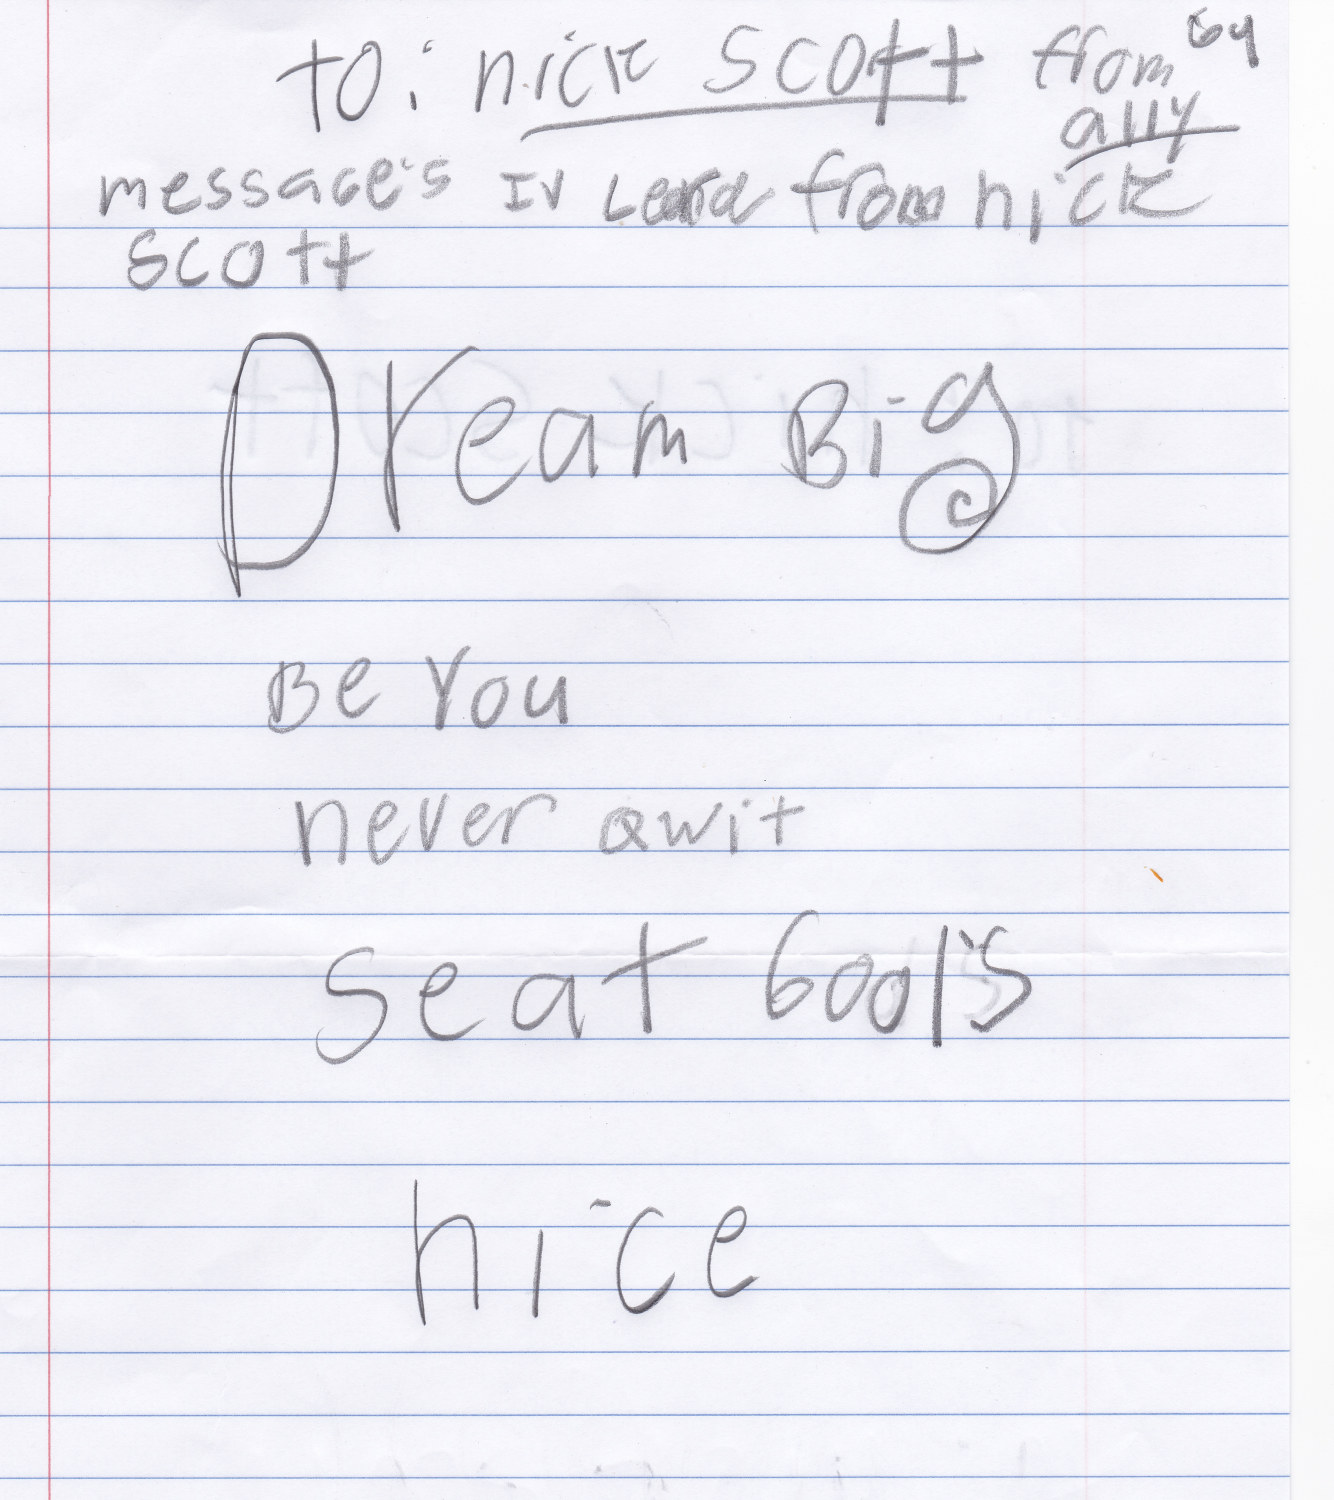 to: nick scott from
ally
message's Iv Leard from nick
scott
Dream Big
Be You
never qwit
seat Gool's
nice